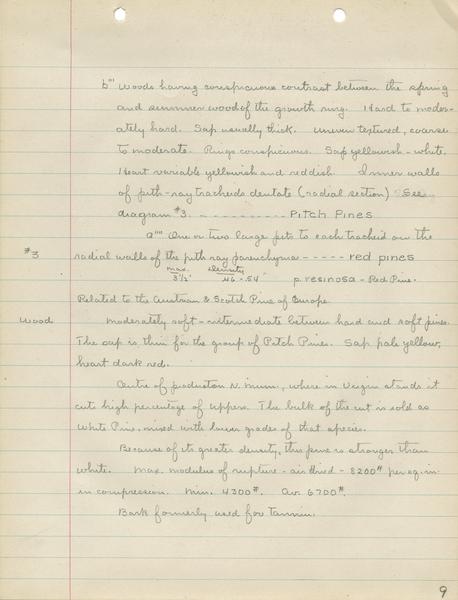 b''' Woods having conspicuous contrast between the spring
and summer wood of the growth ring. Hard to moder-
ately hard. Sap usually thick. Uneven textured, coarse
to moderate. Rings conspicuous. Sap yellowish-white.
Heart variable yellowish and reddish. Inner walls
of pith-ray tracheids dentate (radial section) See
diagram #3. ----------- Pitch Pines
a'''' One or two large pits to each tracheid on the
#3 radial walls of the pith ray parenchyma ----- red pines
max. density
3½' .46-.54 p resinosa - Red Pine.
Related to the Austrian & Scotch Pine of Europe.
Wood Moderately soft - intermediate between hard and soft pines.
The sap is thin for the group of Pitch Pines. Sap pale yellow,
heart dark red.
Centre of production N. Minn., where in Virgin stands it
cuts high percentage of uppers. The bulk of the cut is sold as
White Pine, mixed with lower grades of that species.
Because of its greater density, this pine is stronger than
white. Max. modulus of rupture - air dried - 8200# per sq. in.
in compression. Min. 4300#. Av. 6700#.
Bark formerly used for Tannin.
9